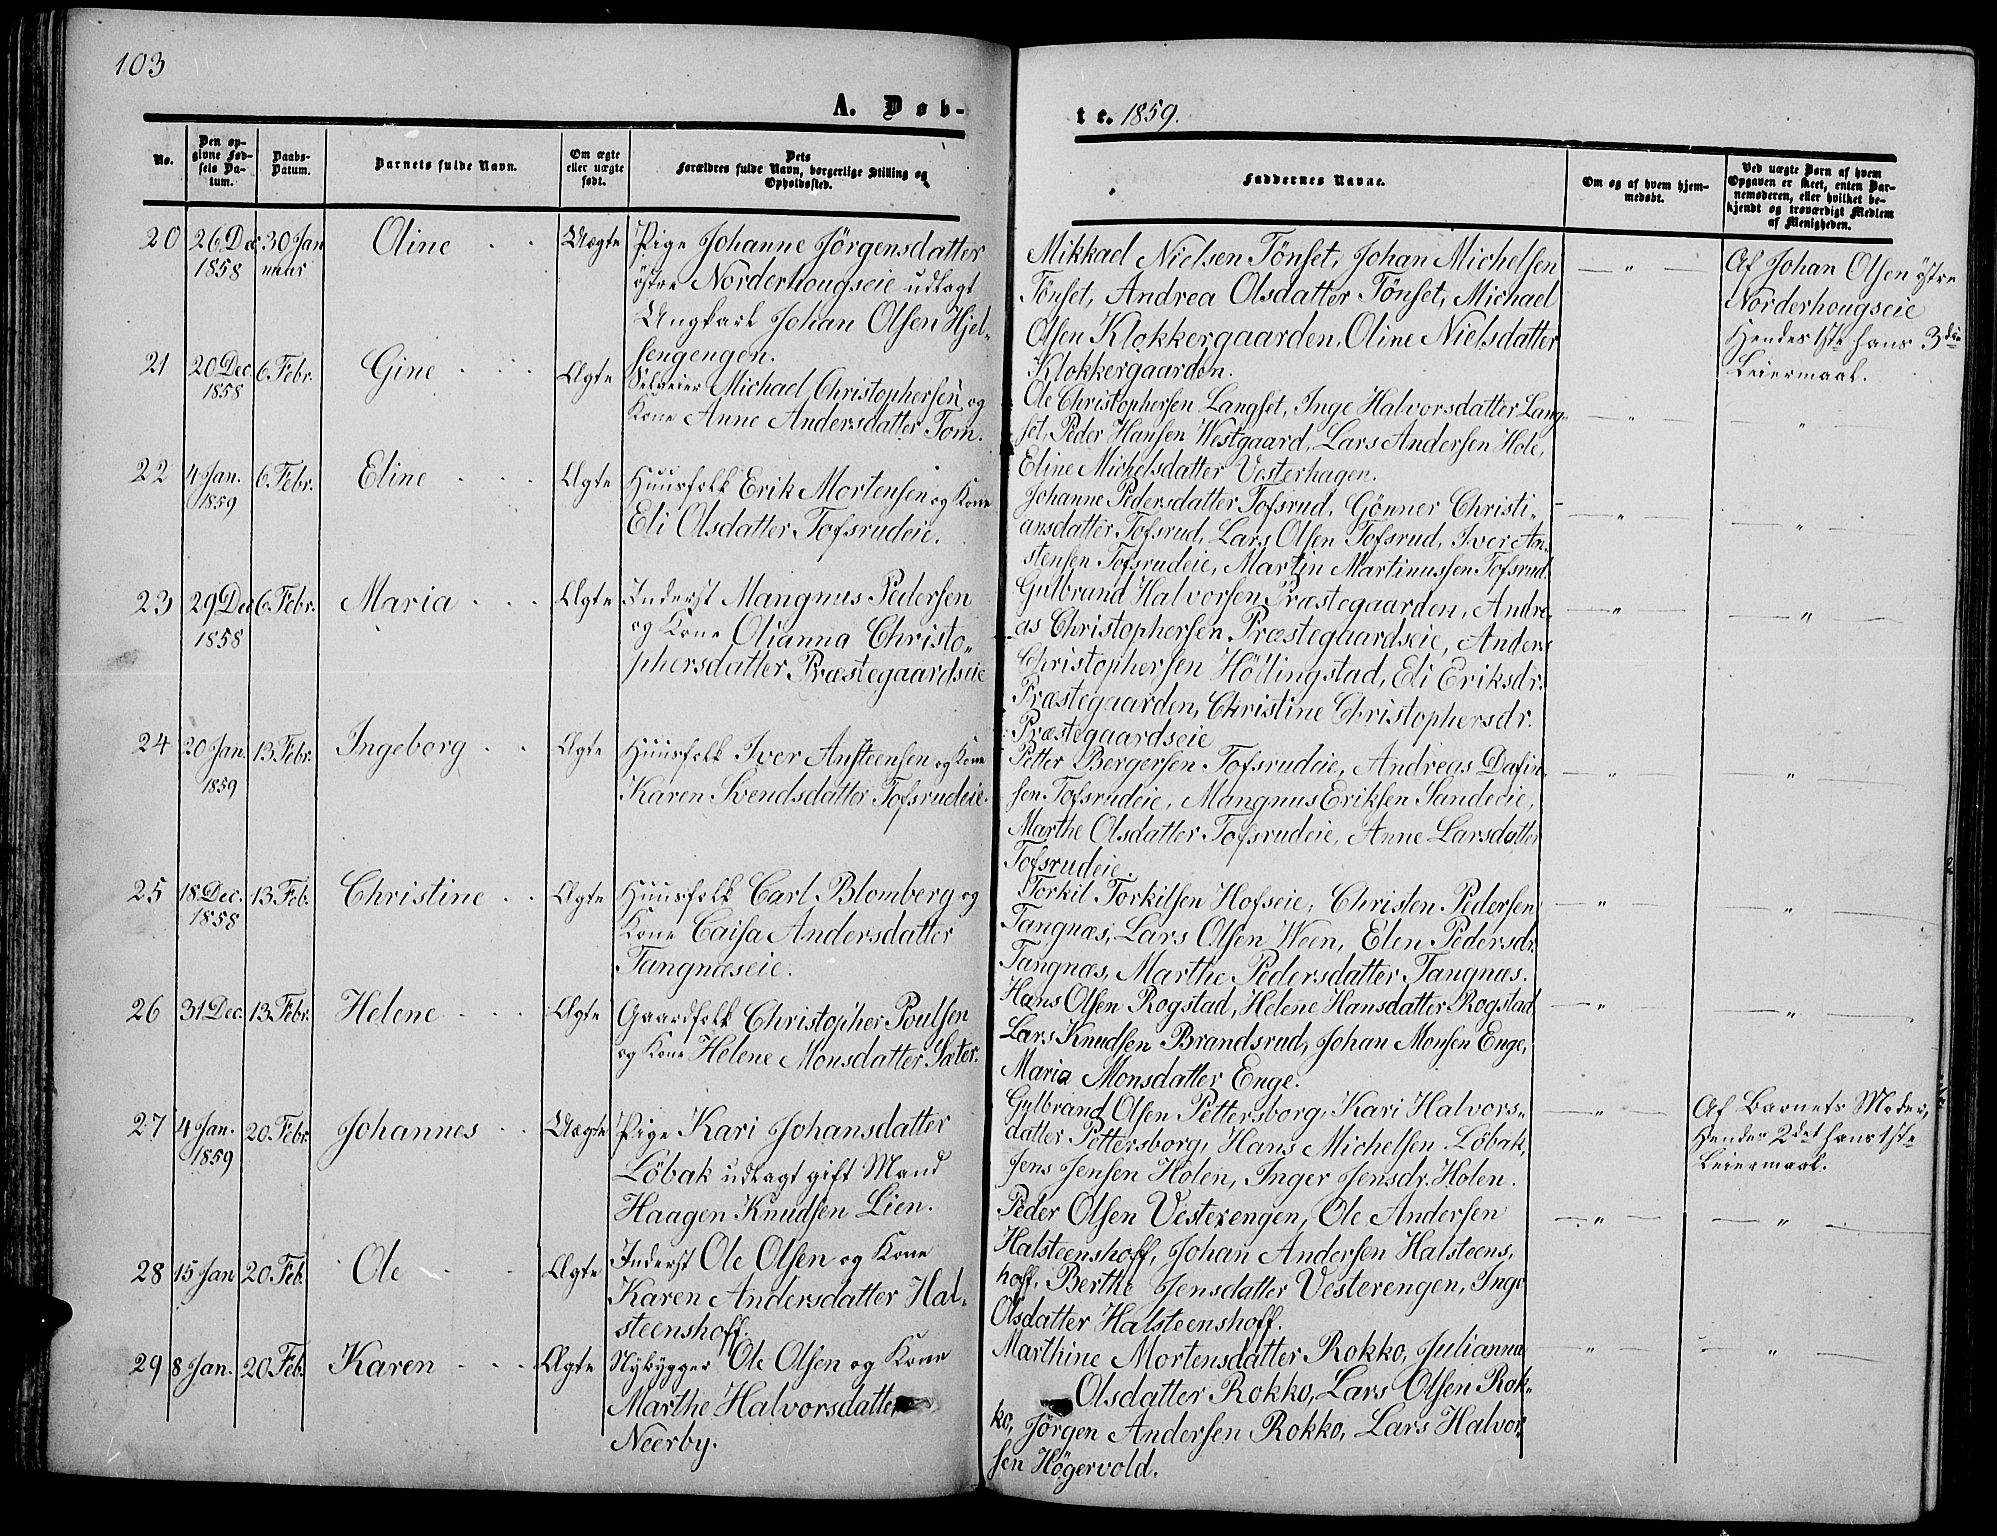 103
A. Døb-
te. 1859.
No.
Den op-
givne Fød-
sels Da-
tum.
Daabs-
Datum.
Barnets fulde Navn.
Om ægte
eller uægte
født.
Dets
Forældres fulde Navn, borgerlige Stilling og
Opholdssted.
Faddernes Navne.
Om og af hvem hjem-
medøbt.
Ved uægte Børn af hvem
Opgaven er skeet, enten Bar-
nemoderen, eller hvilket be-
kjendt og troværdigt Medlem
af Menigheden.
20 26. Dec 30 Jan Oline Uægte Pige Johanne Jörgensdatter
1858 nuar östre Norderhougseie udlagt
Ungkarl Johan Olsen Hjel-
sengengen.
Mikkael Nielsen Tönset, Johan Michelsen
Tönset, Andrea Olsdatter Tönset, Michael
Olsen Klokkergaarden, Oline Nielsdatter
Klokkergaarden.
— " —
Af Johan Olsen östre
Norderhougseie
Hendes 1ste hans 3die
Leiermaal.
21 20 Dec 6. Febr. Gine Ægte Selveier Michael Christophersen og
1858 Kone Anne Andersdatter Tom.
Ole Christophersen Langset, Inge Halvorsdatter Lang-
set, Peder Hansen Westgaard, Lars Andersen Hole,
Eline Michelsdatter Vesterhagen.
— " — — " —
22 4 Jan. 6. Febr. Eline Ægte Huusfolk Erik Mortensen og Kone
1859 Eli Olsdatter Tofsrudeie.
Johanne Pedersdatter Tofsrud, Gönner Christi-
ansdatter Tofsrud, Lars Olsen Tofsrud, Iver An-
stensen Tofsrudeie, Martin Martinussen Tofsrud.
— " — — " —
23 29 Dec 6 Febr. Maria Ægte Inderst Mangnus Pedersen
1858 og Kone Olianna Christo-
phersdatter Præstegaardseie
Gulbrand Halvorsen Præstegaarden, Andre-
as Christophersen Præstegaardseie, Anders
Christophersen Höllingstad, Eli Eriksdr.
Præstegaarden, Christine Christophersdr.
Præstegaardseie
— " — — " —
24 20 Jan. 13 Febr. Ingeborg Ægte Huusfolk Iver Ansteensen og Kone
1859 Karen Svendsdatter Tofsrudeie.
Petter Bergersen Tofsrudeie, Andreas Dafin-
sen Tofsrudeie, Mangnus Eriksen Sandeeie,
Marthe Olsdatter Tofsrudeie, Anne Larsdatter
Tofsrudeie.
— " — — " —
25 18 Dec. 13 Feb. Christine Ægte Huusfolk Carl Blomberg og
1858 Kone Caisa Andersdatter
Tangnæseie.
Torkil Torkilsen Hofseie, Christen Pedersen
Tangnæs, Lars Olsen Ween, Elen Pedersdr.
Tangnæs, Marthe Pedersdatter Tangnæs.
— " — — " —
26 31 Dec. 13 Febr. Helene Ægte Gaardfolk Christopher Poulsen
og Kone Helene Monsdatter Sæter.
Hans Olsen Rogstad, Helene Hansdatter Rogstad
Lars Knudsen Brandsrud, Johan Monsen Enge,
Maria Monsdatter Enge.
— " — — " —
27 4 Jan. 20 Febr Johannes Uægte Pige Kari Johansdatter
1859 Löbak udlagt gift Mand
Haagen Knudsen Lien.
Gulbrand Olsen Pettersborg, Kari Halvors-
datter Pettersborg, Hans Michelsen Löbak,
Jens Jensen Holen, Inger Jensdr. Holen.
— " —
Af Barnets Moder,
Hendes 2det hans 1ste
Leiermaal.
28 15 Jan 20 Feb. Ole Ægte Inderst Ole Olsen og Kone
Karen Andersdatter Hal-
steenshoff.
Peder Olsen Vesterengen, Ole Andersen
Halsteenshoff, Johan Andersen Halsteens-
hoff, Berthe Jensdatter Vesterengen, Inge
Olsdatter Halsteenshoff.
— " — — " —
29 8 Jan. 20 Feb. Karen Ægte Nybygger Ole Olsen og Kone
Marthe Halvorsdatter
Neerby.
Marthine Mortensdatter Rokko, Julianna
Olsdatter Rokko, Lars Olsen Rok-
ko, Jörgen Andersen Rokko, Lars Halvor-
sen Högervold.
— " — — " —